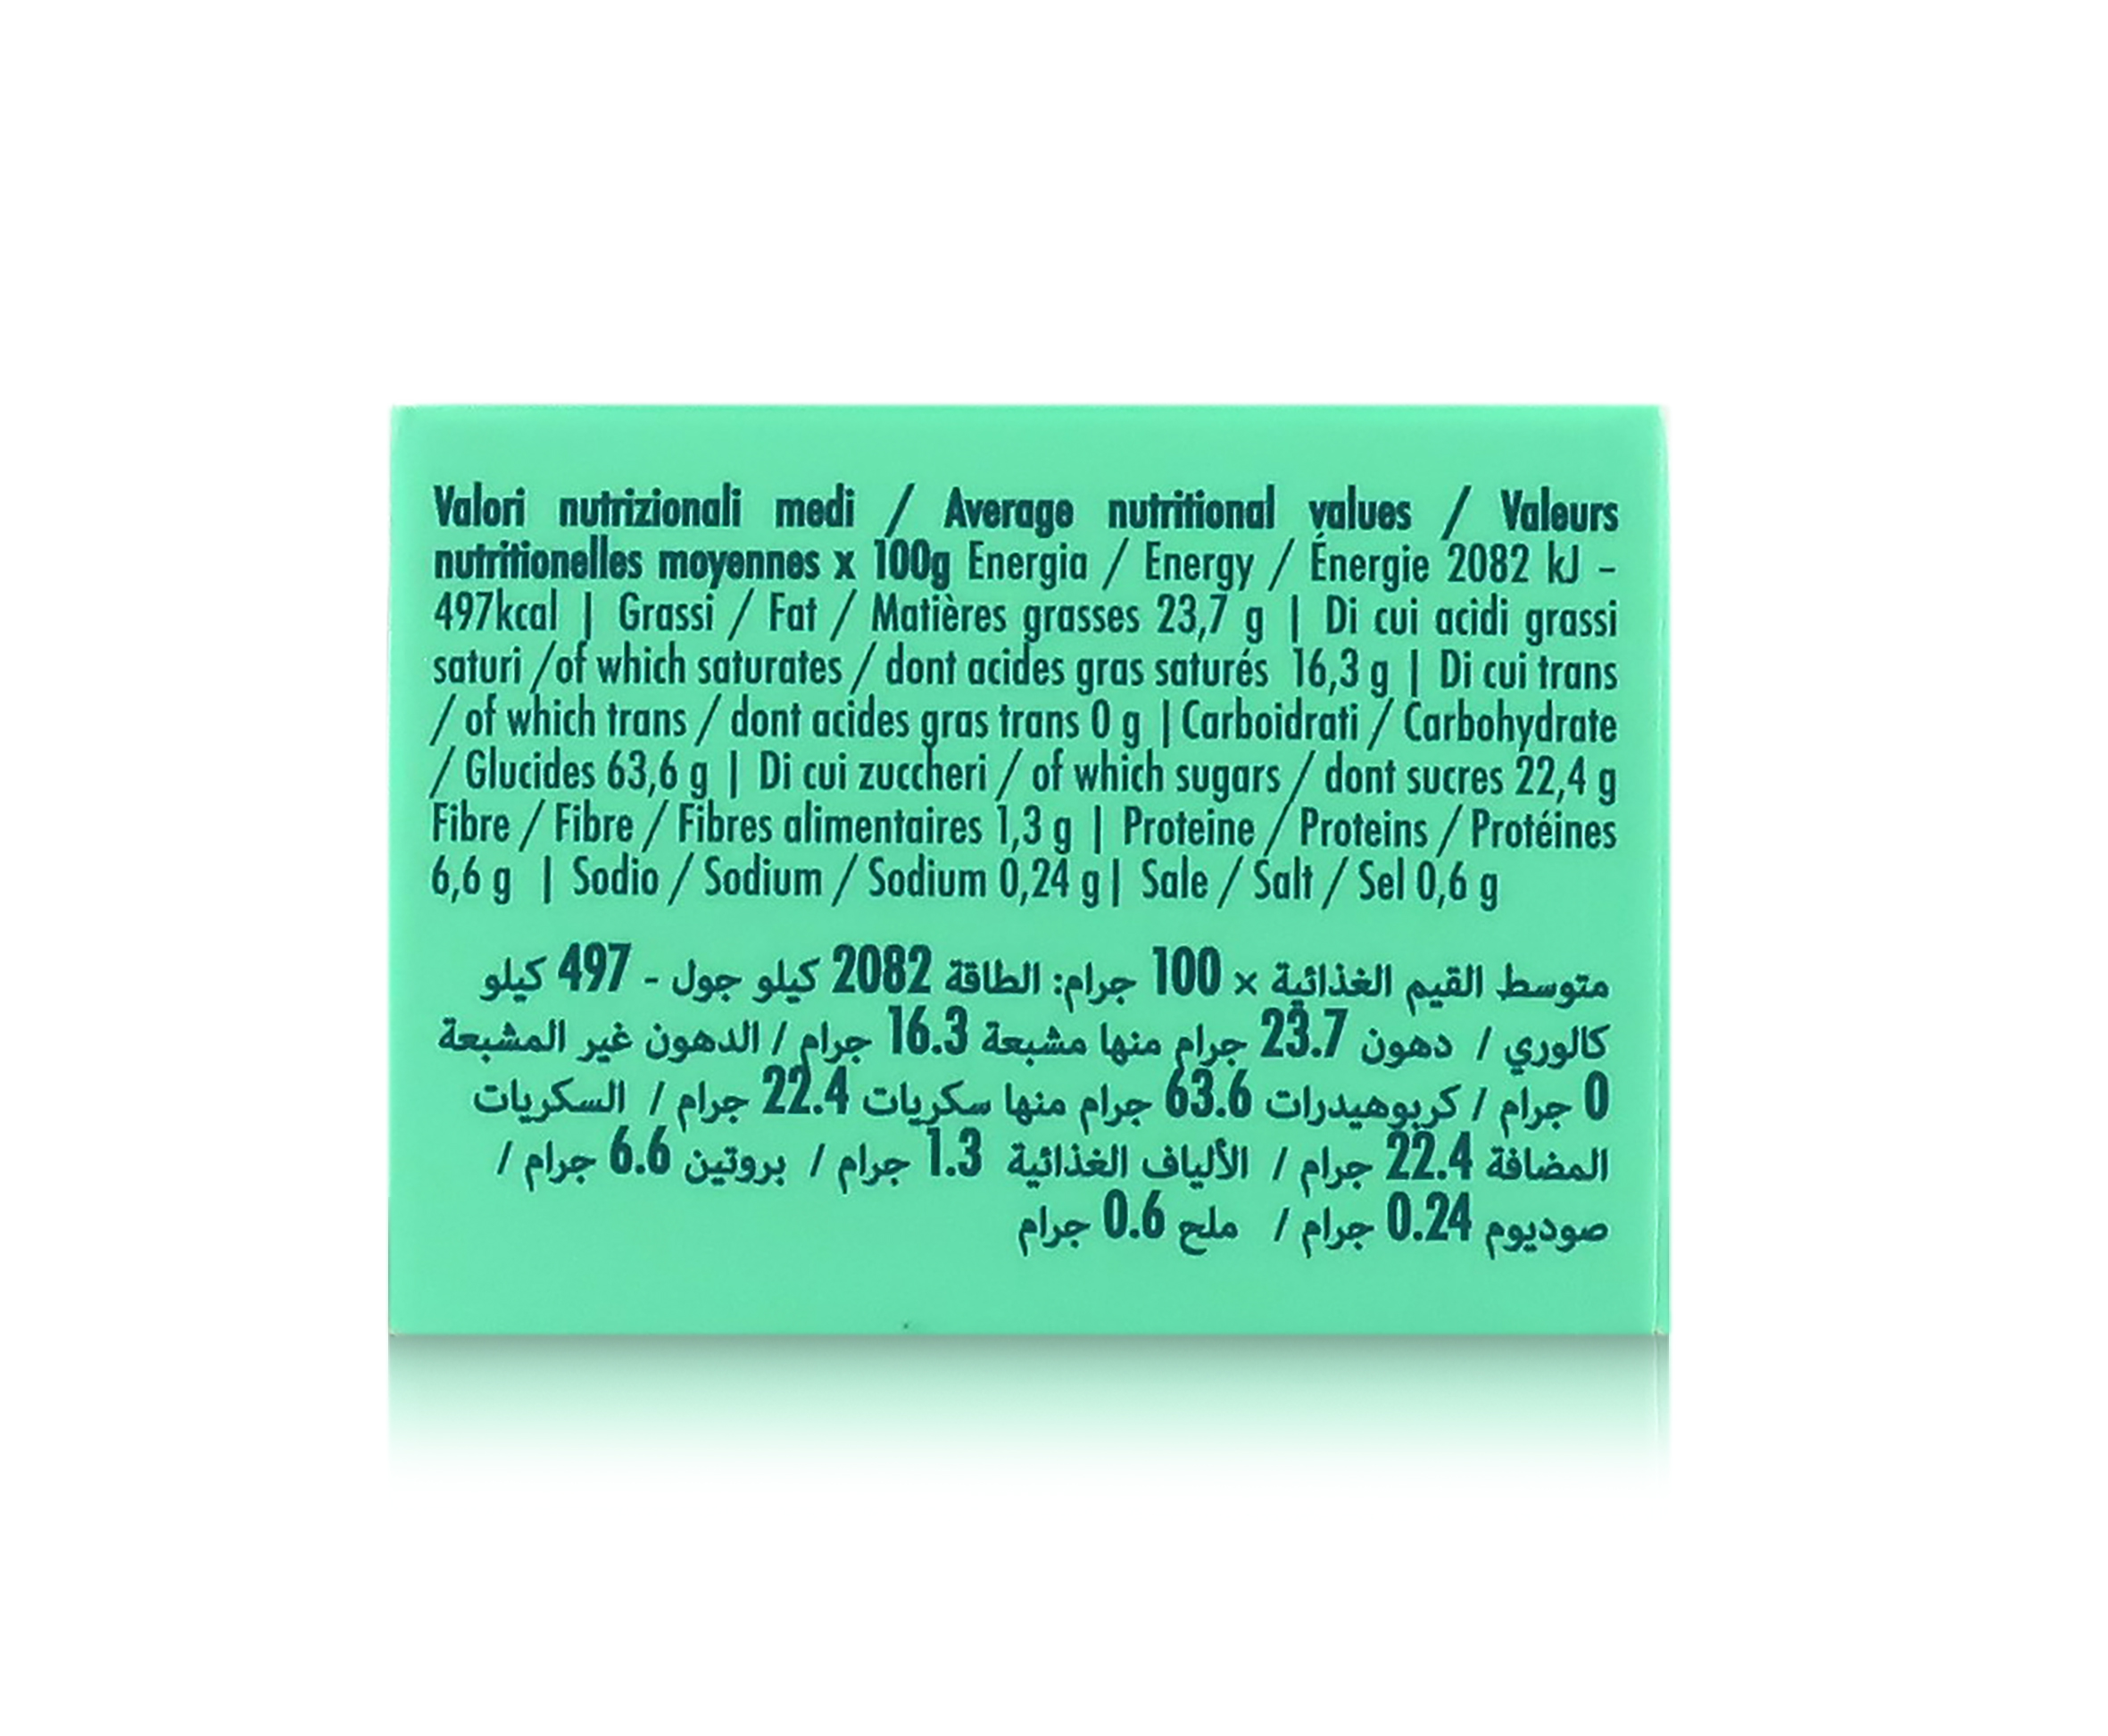 Valori nutrizionali medi / Average nutritional values / Valeurs
nutritionelles moyennes x 100g Energia / Energy / Énergie 2082 kJ –
497kcal | Grassi / Fat / Matières grasses 23,7 g | Di cui acidi grassi
saturi /of which saturates / dont acides gras saturés 16,3 g | Di cui trans
/ of which trans / dont acides gras trans 0 g | Carboidrati / Carbohydrate
/ Glucides 63,6 g | Di cui zuccheri / of which sugars / dont sucres 22,4 g
Fibre / Fibre / Fibres alimentaires 1,3 g | Proteine / Proteins / Protéines
6,6 g | Sodio / Sodium / Sodium 0,24 g | Sale / Salt / Sel 0,6 g
متوسط القيم الغذائية × 100 جرام: الطاقة 2082 كيلو جول - 497 كيلو
كالوري / دهون 23.7 جرام منها مشبعة 16.3 جرام / الدهون غير المشبعة
0 جرام / كربوهيدرات 63.6 جرام منها سكريات 22.4 جرام / السكريات
المضافة 22.4 جرام / الألياف الغذائية 1.3 جرام / بروتين 6.6 جرام /
صوديوم 0.24 جرام / ملح 0.6 جرام